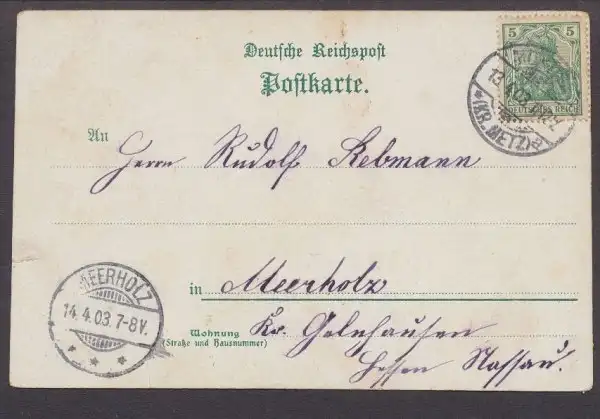 Deutsche Reichspost
Postkarte.
5 5
DEUTSCHES REICH
13.4.03
*(KR. METZ)
An
Herrn Rudolf Rebmann
in Meerholz
Wohnung
(Straße und Hausnummer)
Kr. Gelnhausen
Hessen Nassau.
MEERHOLZ
14.4.03.7-8V.
* * *